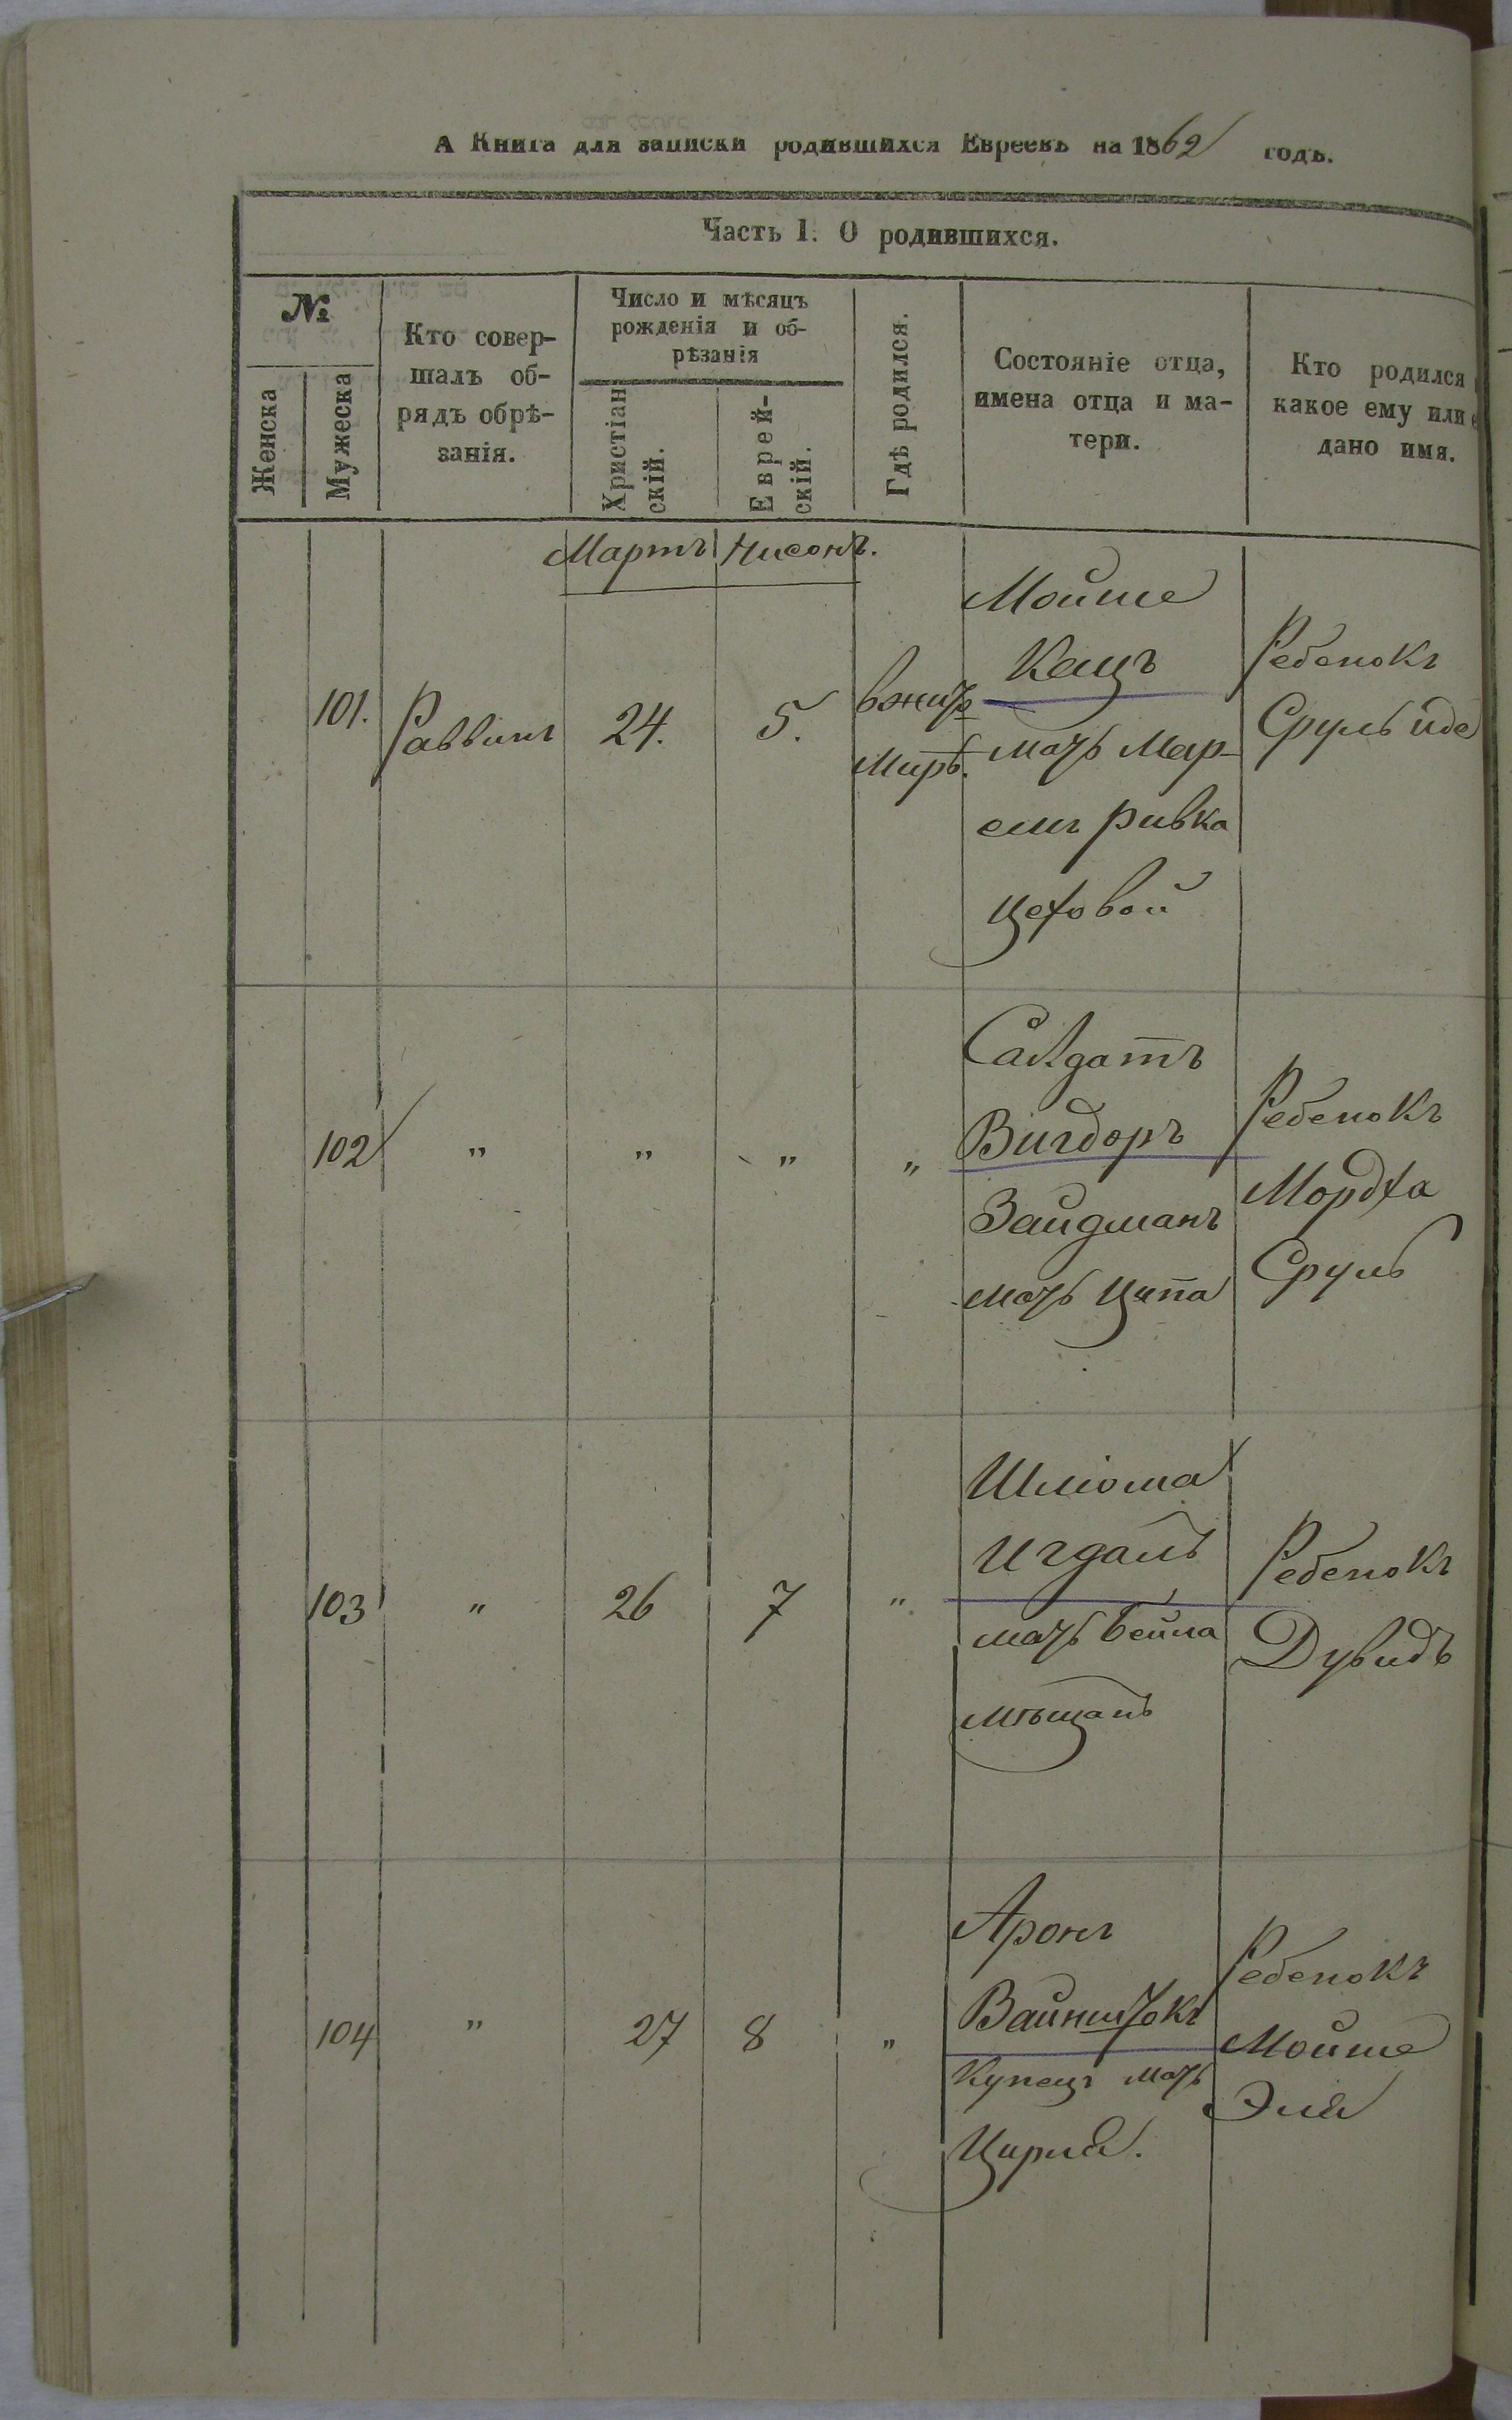 А Книга для записки родившихся Евреевъ на 1862 годъ.
Часть I. О родившихся.
№
Женска
Мужеска
Кто совер-
шалъ об-
рядъ обрѣ-
занія.
Число и мѣсяцъ
рожденія и об-
рѣзанія
Христіан
скій.
Еврей-
скій.
Гдѣ родился.
Состояніе отца,
имена отца и ма-
тери.
Кто родился
какое ему или
дано имя.
Мартъ Нисонъ.
101.
Раввинъ
24.
5.
вжит
Мирѣ.
Мойше
Кацъ
мать Мар-
емъ Ривка
Цеховой
Ребенокъ
Сруль Иде
102
"
"
"
"
Салдатъ
Вигдоръ
Зайдманъ
мать Ципа
Ребенокъ
Мордха
Сруль
103
"
26
7
"
Шліома
Игдалъ
мать Бейла
мѣщанъ
Ребенокъ
Дувидъ
104
"
27
8
"
Аронъ
Вайнштокъ
Купецъ мать
Цирля.
Ребенокъ
Мойше
Эля